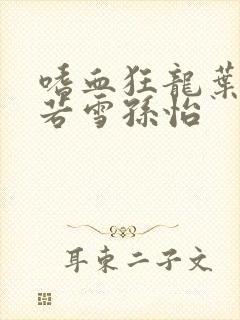 嗜血狂龍葉
若雪孫怡
耳東二子文